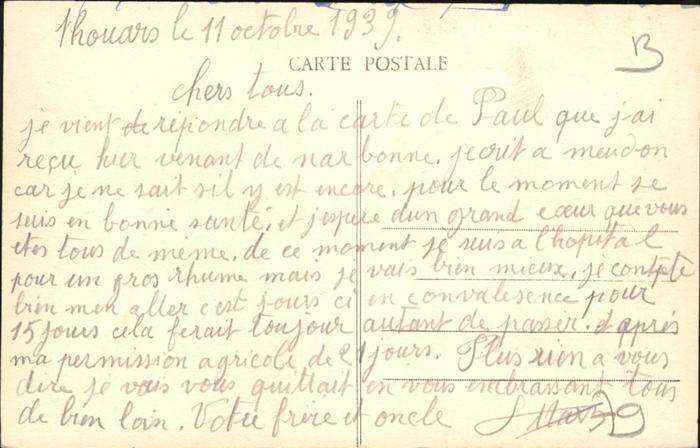 Thouars le 11 octobre 1939.
B
CARTE POSTALE
chers tous.
je vient de répondre a la carte de Paul que j'ai
reçu hier venant de narbonne. jecrit a meudon
car je ne sait s'il y est encore. pour le moment je
suis en bonne santé, et j'espere dun grand cœur que vous
etes tous de même. de ce moment je suis a l'hopital
pour un gros rhume mais je vais bien mieux, je compte
bien men aller c'est jours ci en convalesence pour
15 jours cela ferait toujour autant de passer. et après
ma permission agricole de 21 jours. Plus rien a vous
dire je vais vous quittait en vous embrassant tous
de bien loin. Votre frère et oncle
39